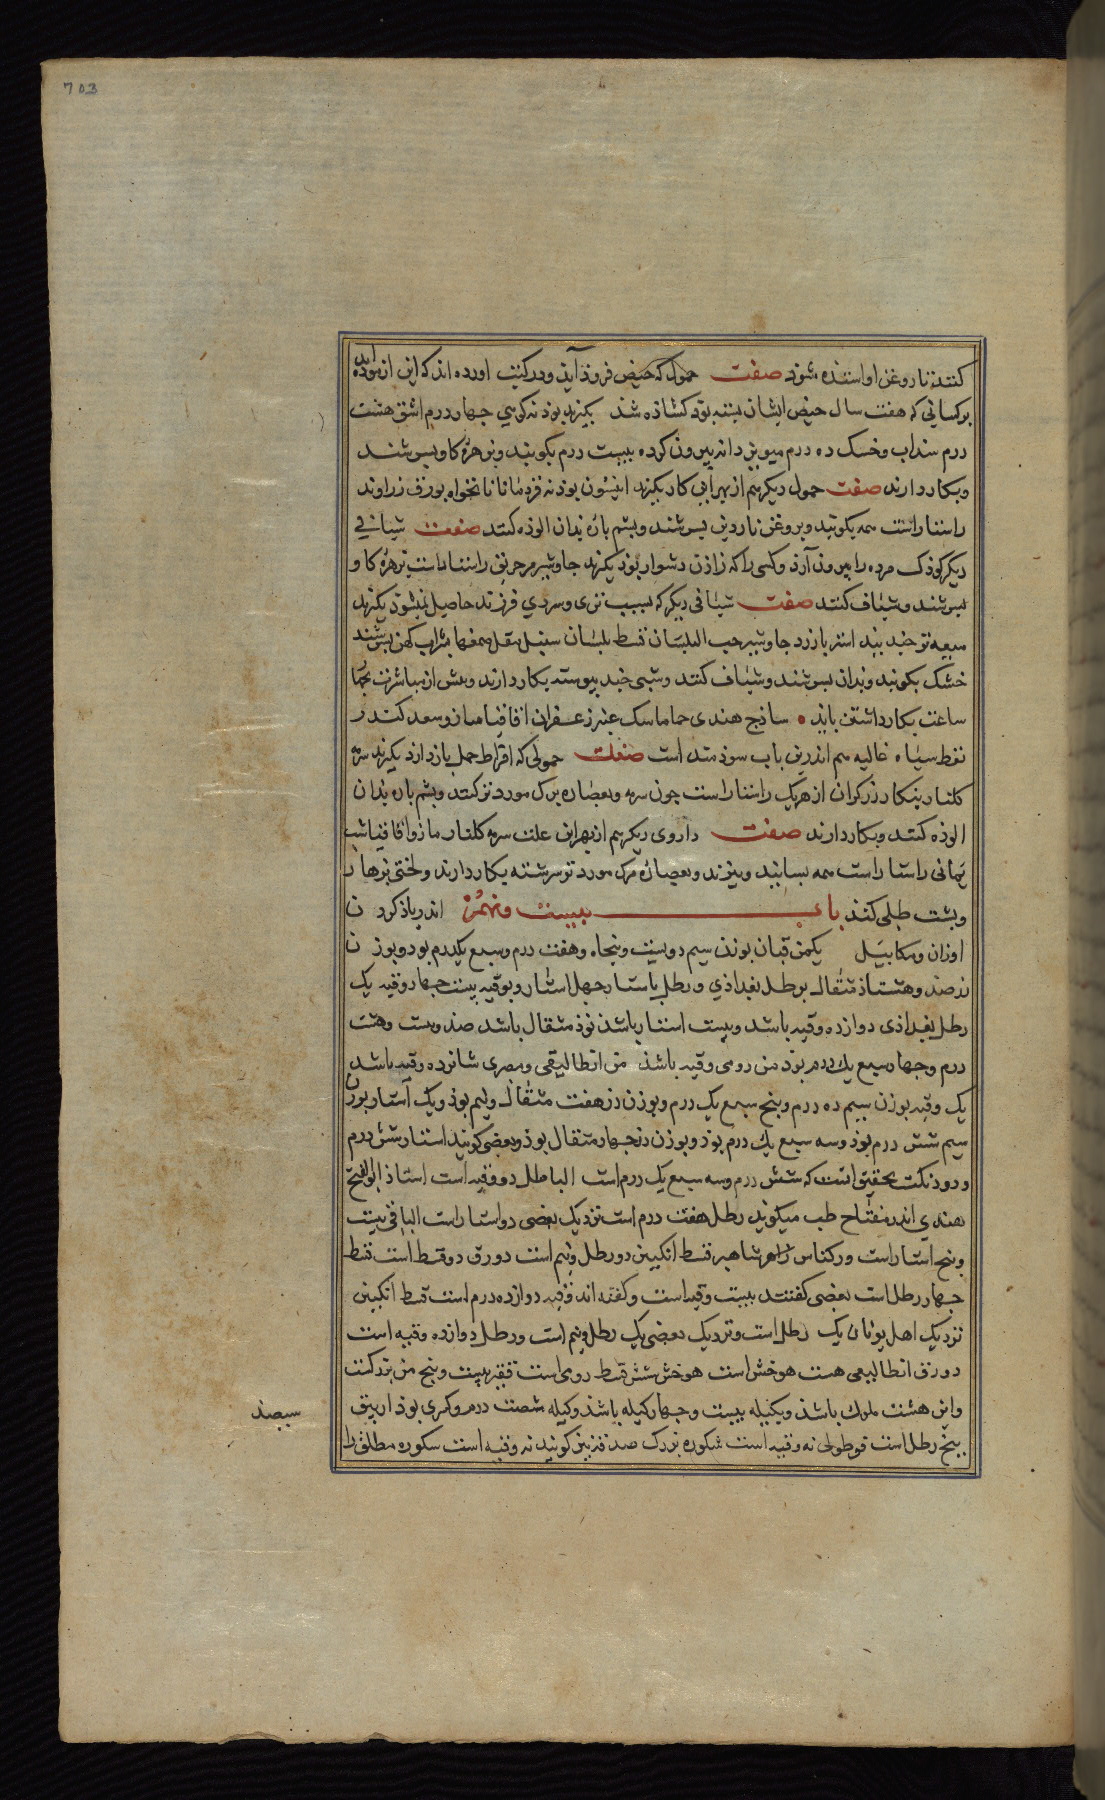 703
کنند تا روغن او استده شود صفت حمول که حیض فروذ آید ودر کتب اورده اند که این ازموده اند
بر کسانی که هفت سال حیض ایشان بسته بوذ کشاذه شذ بکیرند بوذنه کوهی جهار درم اشق هشت
درم سنداب وخسک ده درم میویز دانه بیرون کرده بیست درم بکوبند وبزهره کاو بسرشند
وبکار دارند صفت حمول دیکر هم از بهر این کار بکیرند افیثون بوذنه فردمانا نانخواه بورق زراوند
راستاراست همه بکوبند وبروغن ناردین بسرشند وبشم باره بذان الوذه کنند صفت شیافی
دیکر کوذک مرده را بیرون آرذ وکسی را که زاذن دشوار بوذ بکیرند جاوشیر مر خربق راستاراست بزهره کاو
بسرشند وشیاف کنند صفت شیافی دیکر که بسبب تری وسردی فرزند حاصل نمیشوذ بکیرند
میعه جند بیدستر بارزد جاوشیر حب البلسان قسط بلسان سنبل مقل صمغها بشراب کهن بسرشند
خشک بکوبند وبذان بسرشند وشیاف کنند وشبی جند بیوسته بکار دارند وبیش از مباشرت بجهار
ساعت بکار داشتن باید ساذج هندی حماما سک عنبر زعفران اقاقیا مازو سعد کندر
نفط سیاه غالیه هم اندرین باب سوذمند است صفت حمولی که افراط حمل بازدارد بکیرند سرمه
کلنار بنکار زرکران از هر یک راستاراست جون سرمه وبعصاره برک مورد تر کنند وبشم باره بذان
الوذه کنند وبکار دارند صفت داروی دیکر هم از بهر این علت سرمه کلنار مازو اقاقیا شب
یمانی راستاراست همه بسایند وببزند وبعصاره برک مورد تر سرشته بکار دارند ولختی بزهار
وبشت طلی کنند باب بیست ونهم اندر یاذ کردن
اوزان ومکاییل یکمن قبان بوزن سیم دویست وبنجاه وهفت درم وسبع یکدرم بود وبوزن
زر صذ وهشتاذ مثقال برطل بغداذی ورطل باستار جهل استار وبوقیه بیست جهار وقیه یک
رطل بغداذی دوازده وقیه باشد وبیست استار باشذ نوذ مثقال باشد صذ وبیست وهشت
درم وجهار سبع یک درم بوذ من رومی وقیه باشذ من انطالیقی ومصری شانزده وقیه باشد
یک وقیه بوزن سیم ده درم وبنج سبع یک درم وبوزن زر هفت مثقال ونیم بوذ ویک آستار بوزن
سیم شش درم بوذ وسه سبع یک درم بوذ وبوزن زر جهار مثقال بوذ وبعضی کویند استار شش درم
ودو دنکست بحقیق انست که شش درم وسه سبع یک درم است الباطل دو وقیه است استاذ ابو الفرج
هندی اندر مفتاح طب میکوید رطل هفت درم است نزدیک بعضی دو استار است الباقی بیست
وبنج استار است ودر کناس شاهر قسط انکبین دو رطل ونیم است دورق دو قسط است قسط
جهار رطل است بعضی کفتند بیست وقیه است وکفته اند وقیه دوازده درم است قسط انکبین
نزدیک اهل یونان یک رطل است ونزدیک بعضی یک رطل ونیم است ورطل دوازده وقیه است
دورق انطالیقی هست هوخش است هوخش شش قسط رومی است قفیز بیست وبنج من بذر کنت
واین هشت ملوک باشذ ویکیله بیست وجهار کیله باشذ وکیله شصت درم وکسری بوذ ابریق
بنج رطل است قوطولی نه وقیه است سکوره بزرک صدفه نیز کویند نه وقیه است سکوره مطلق را
سیصذ